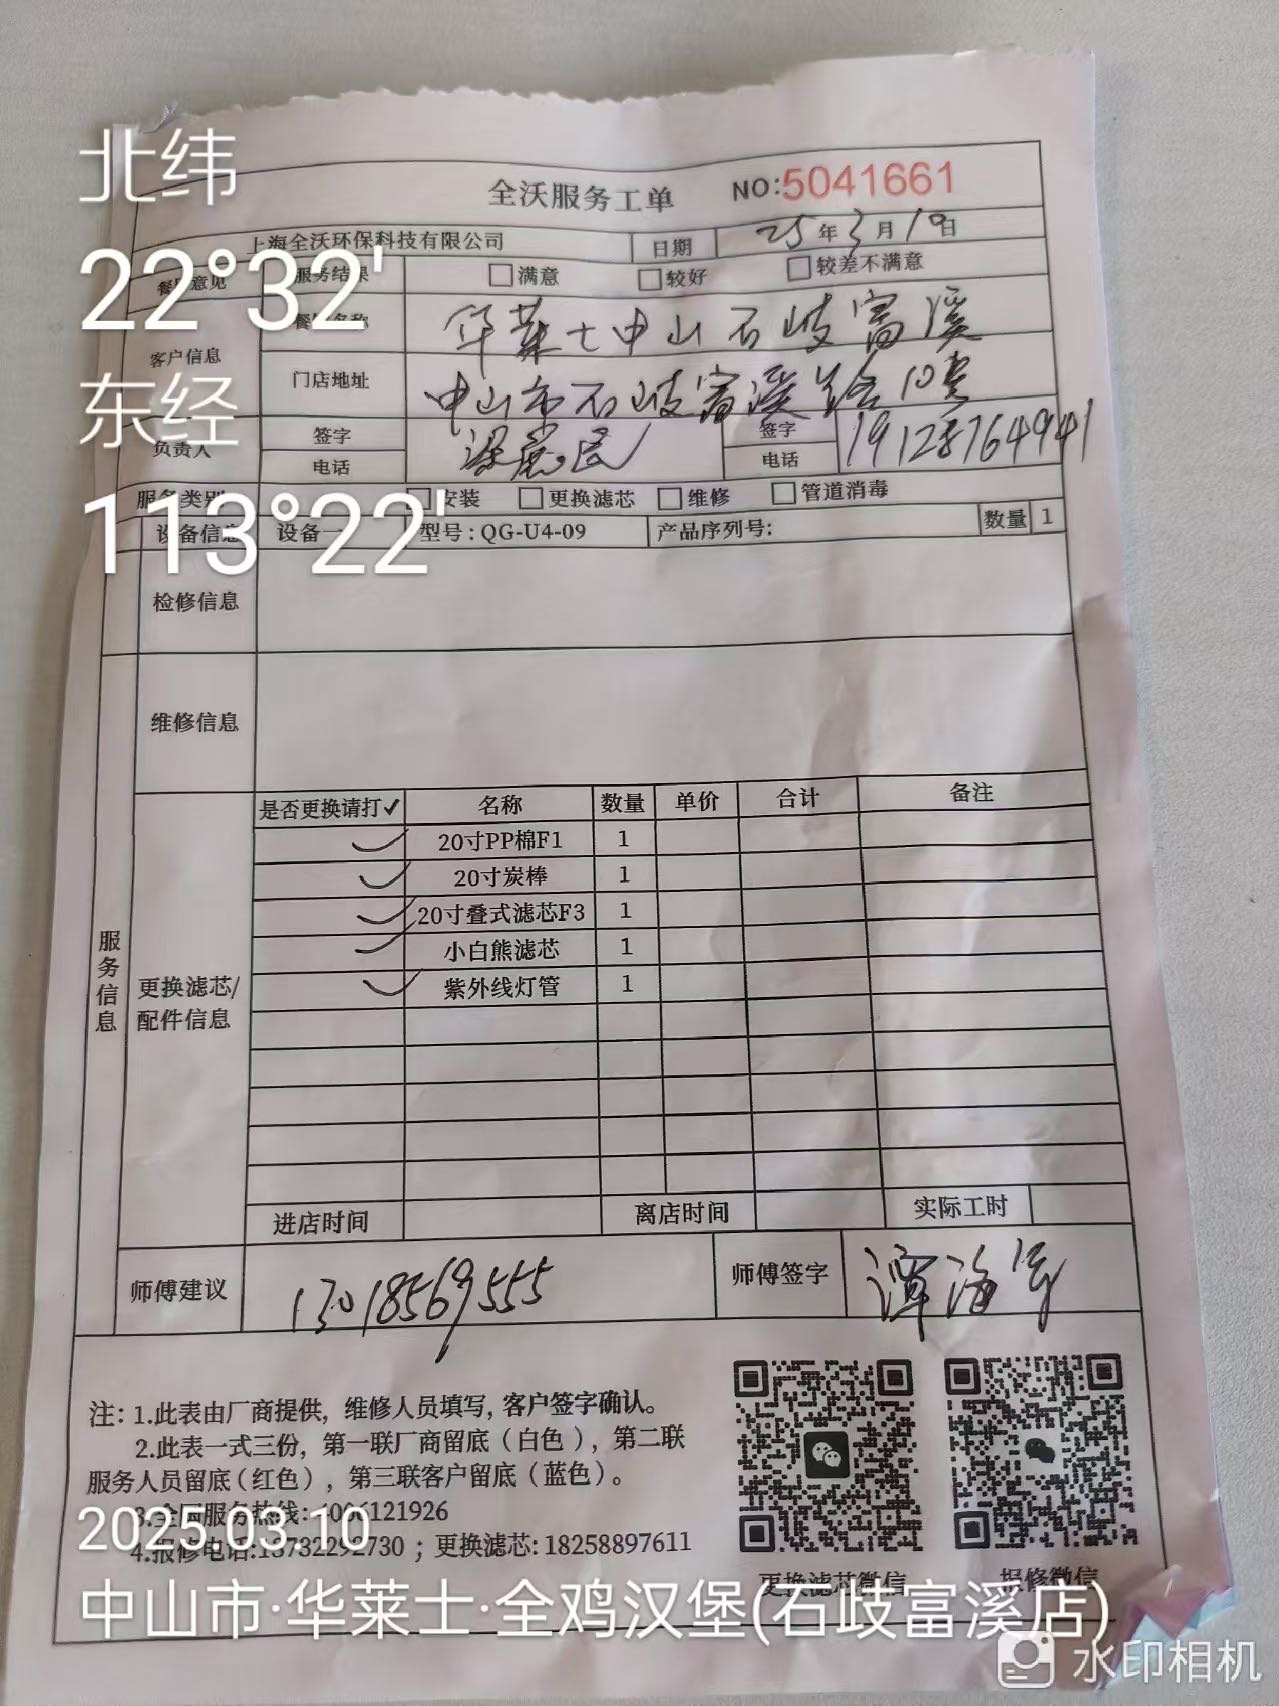 全沃服务工单 NO:5041661
上海全沃环保科技有限公司 日期 25年3月10日
服务结果 满意 较好 较差不满意
华莱士中山石岐富溪
客户信息
门店地址 中山市石岐富溪 10
负责人 签字 签字 19128764941
电话 电话
服务类别 安装 更换滤芯 维修 管道消毒
设备信息 设备一 型号：QG-U4-09 产品序列号： 数量 1
检修信息
维修信息
服务信息
更换滤芯/配件信息
是否更换请打✓ 名称 数量 单价 合计 备注
✓ 20寸PP棉F1 1
✓ 20寸炭棒 1
✓ 20寸叠式滤芯F3 1
✓ 小白熊滤芯 1
✓ 紫外线灯管 1
进店时间 离店时间 实际工时
师傅建议 13018569555 师傅签字
注：1.此表由厂商提供，维修人员填写，客户签字确认。
2.此表一式三份，第一联厂商留底（白色），第二联
服务人员留底（红色），第三联客户留底（蓝色）。
3.全国服务热线：4006121926
4.报修电话:13732292730；更换滤芯:18258897611
更换滤芯微信 报修微信
北纬
22°32'
东经
113°22'
2025.03.10
中山市·华莱士·全鸡汉堡(石歧富溪店)
水印相机